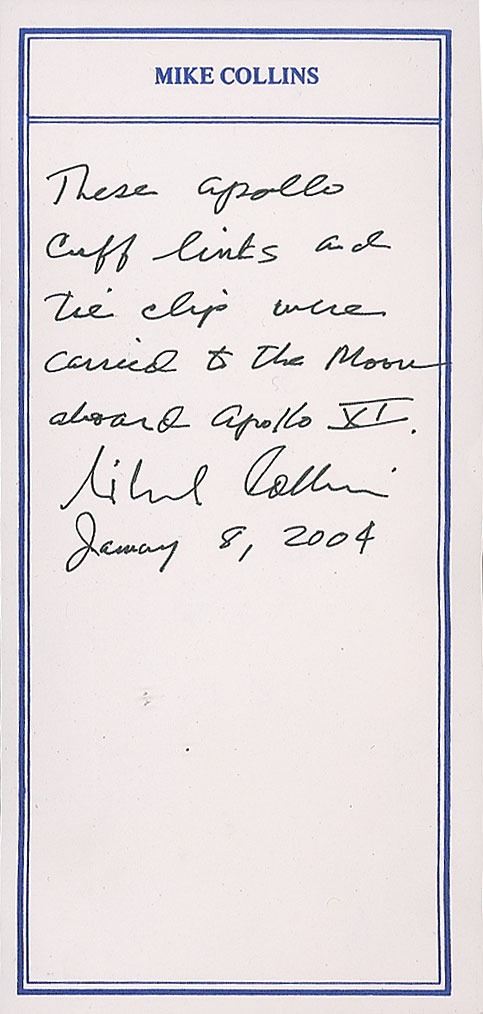 MIKE COLLINS
These Apollo
Cuff links and
tie clip were
carried to the Moon
aboard Apollo XI.
Michael Collins
January 8, 2004